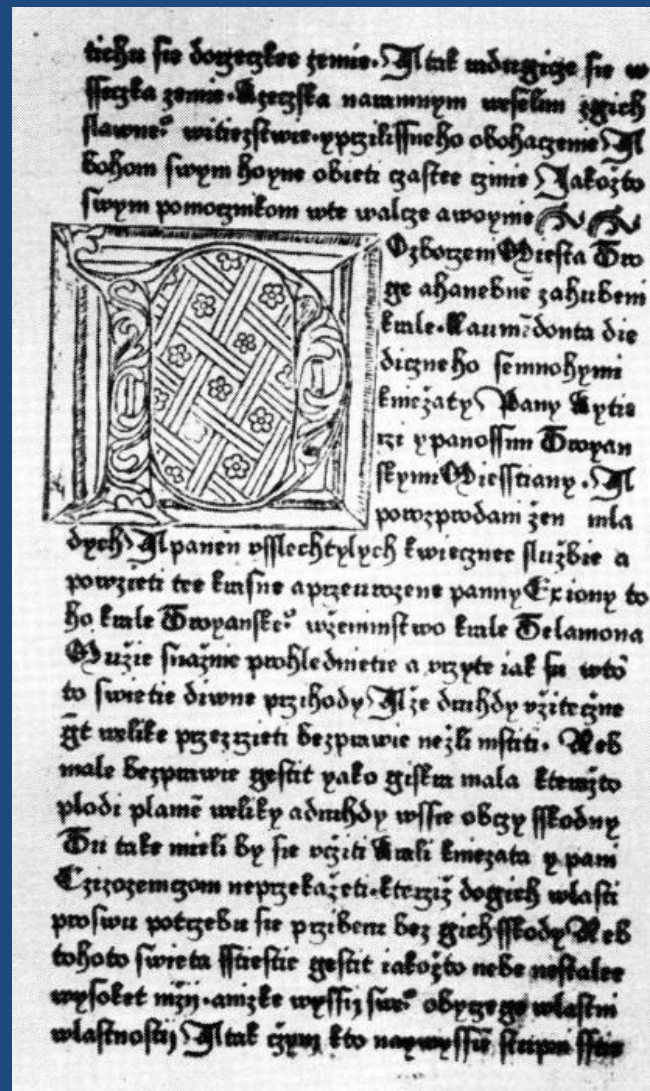 tichu sie dorzeczkee zemie. A tak radugicze sie w
sseczka zemie. Rzeczska naramnym weselim zgich
slawne° witiezstwie. yprzilissneho obohaczenie A
bohom swym hoyne obieti czastee czinie Jakožto
swym pomocznikom wte walcze awoynie
Ozborzem Miesta Tro
ge ahanebnē zahubeni
krale. Laumēdonta die
diczneho semnohymi
kniežaty Pany Rytie
rzi ypanossimi Troyan
skymi Miesstiany. A
porozprodani žen mla
dych A panen vsslechtylych kwiecznee službie a
powzieti tee krasne aprzeurozene panny Exiony to
ho krale Troyanske° wženinstwo krale Telamona
Mužie snažnie prohlednietie a vrzyte iak su wto
to swietie diwne przihody A že druhdy vžiteczne
gt welike przezrzieti bezprawie nežli mstiti. Neb
male bezprawie gestit yako giskra mala kteražto
plodi plamē weliky adruhdy wssie obczy sskodny
Tu take mieli by sie vcziti Krali kniezata y pani
Czizozemczom neprzekažeti. kterziž dogich wlasti
proswu potrzebu sie prziberu bez gich sskody Neb
tohoto swieta sstiestie gestit iakožto nebe nestalee
wysoket niži. anizke wyssij swe° obyczege wlastni
wlastnostij A tak czym kto naywyssiē stupni sstie